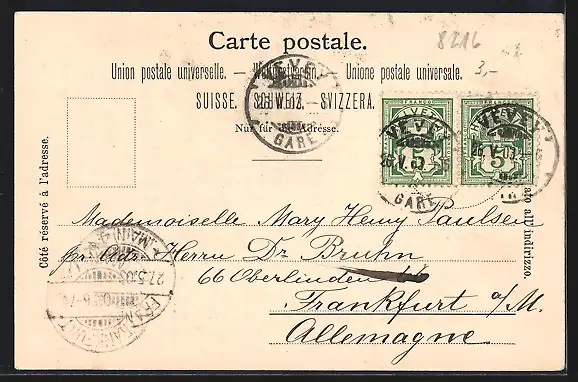 Carte postale.
8216
3,-
Union postale universelle. — Weltpostverein. — Unione postale universale.
SUISSE. SCHWEIZ. — SVIZZERA.
Nur für die Adresse.
Côté réservé à l'adresse.
lato all' indirizzo.
VEVEY
GARE
HELVETIA
5
VEVEY
26 V.03
GARE
HELVETIA
5
VEVEY
26 V.03
Mademoiselle Mary Henny Paulsen
pr. Adr. Herrn Dr. Bruhn
66 Oberlinden
Frankfurt a/M.
Allemagne.
FRANKFURT
(MAIN)
27.5.03